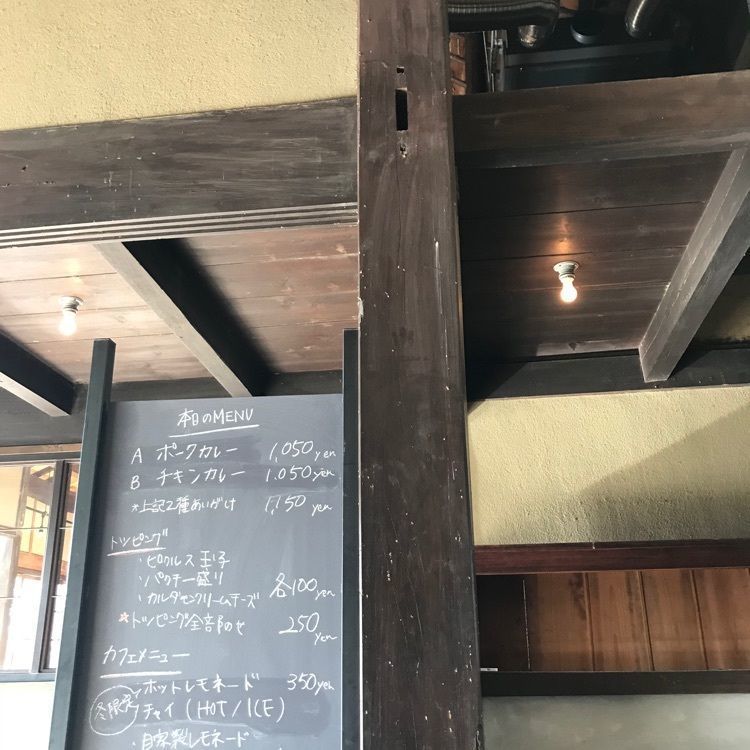 本日のMENU
A ポークカレー 1,050 yen
B チキンカレー 1.050 yen
*上記2種あいがけ 1,150 yen
トッピング
・ピクルス玉子
・パクチー盛り 各100 yen
・カルダモンクリームチーズ
☆トッピング全部のせ 250 yen
カフェメニュー
冬限定
・ホットレモネード 350 yen
・チャイ (HOT / ICE)
・自家製レモネード